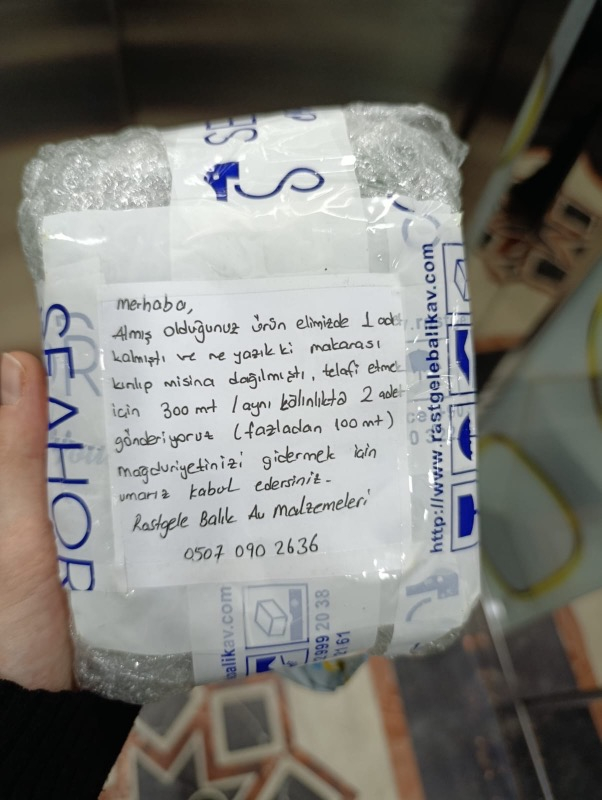 merhaba,
Almış olduğunuz ürün elimizde 1 adet
kalmıştı ve ne yazık ki makarası
kırılıp misina dağılmıştı, telafi etmek
için 300 mt / aynı kalınlıkta 2 adet
gönderiyoruz (fazladan 100 mt)
mağduriyetinizi gidermek için
umarız kabul edersiniz.
Rastgele Balık Av Malzemeleri
0507 090 2636
SEAHOR
http://www.rastgelebalikav.com
balikav.com
2999 20 38
2161
SE